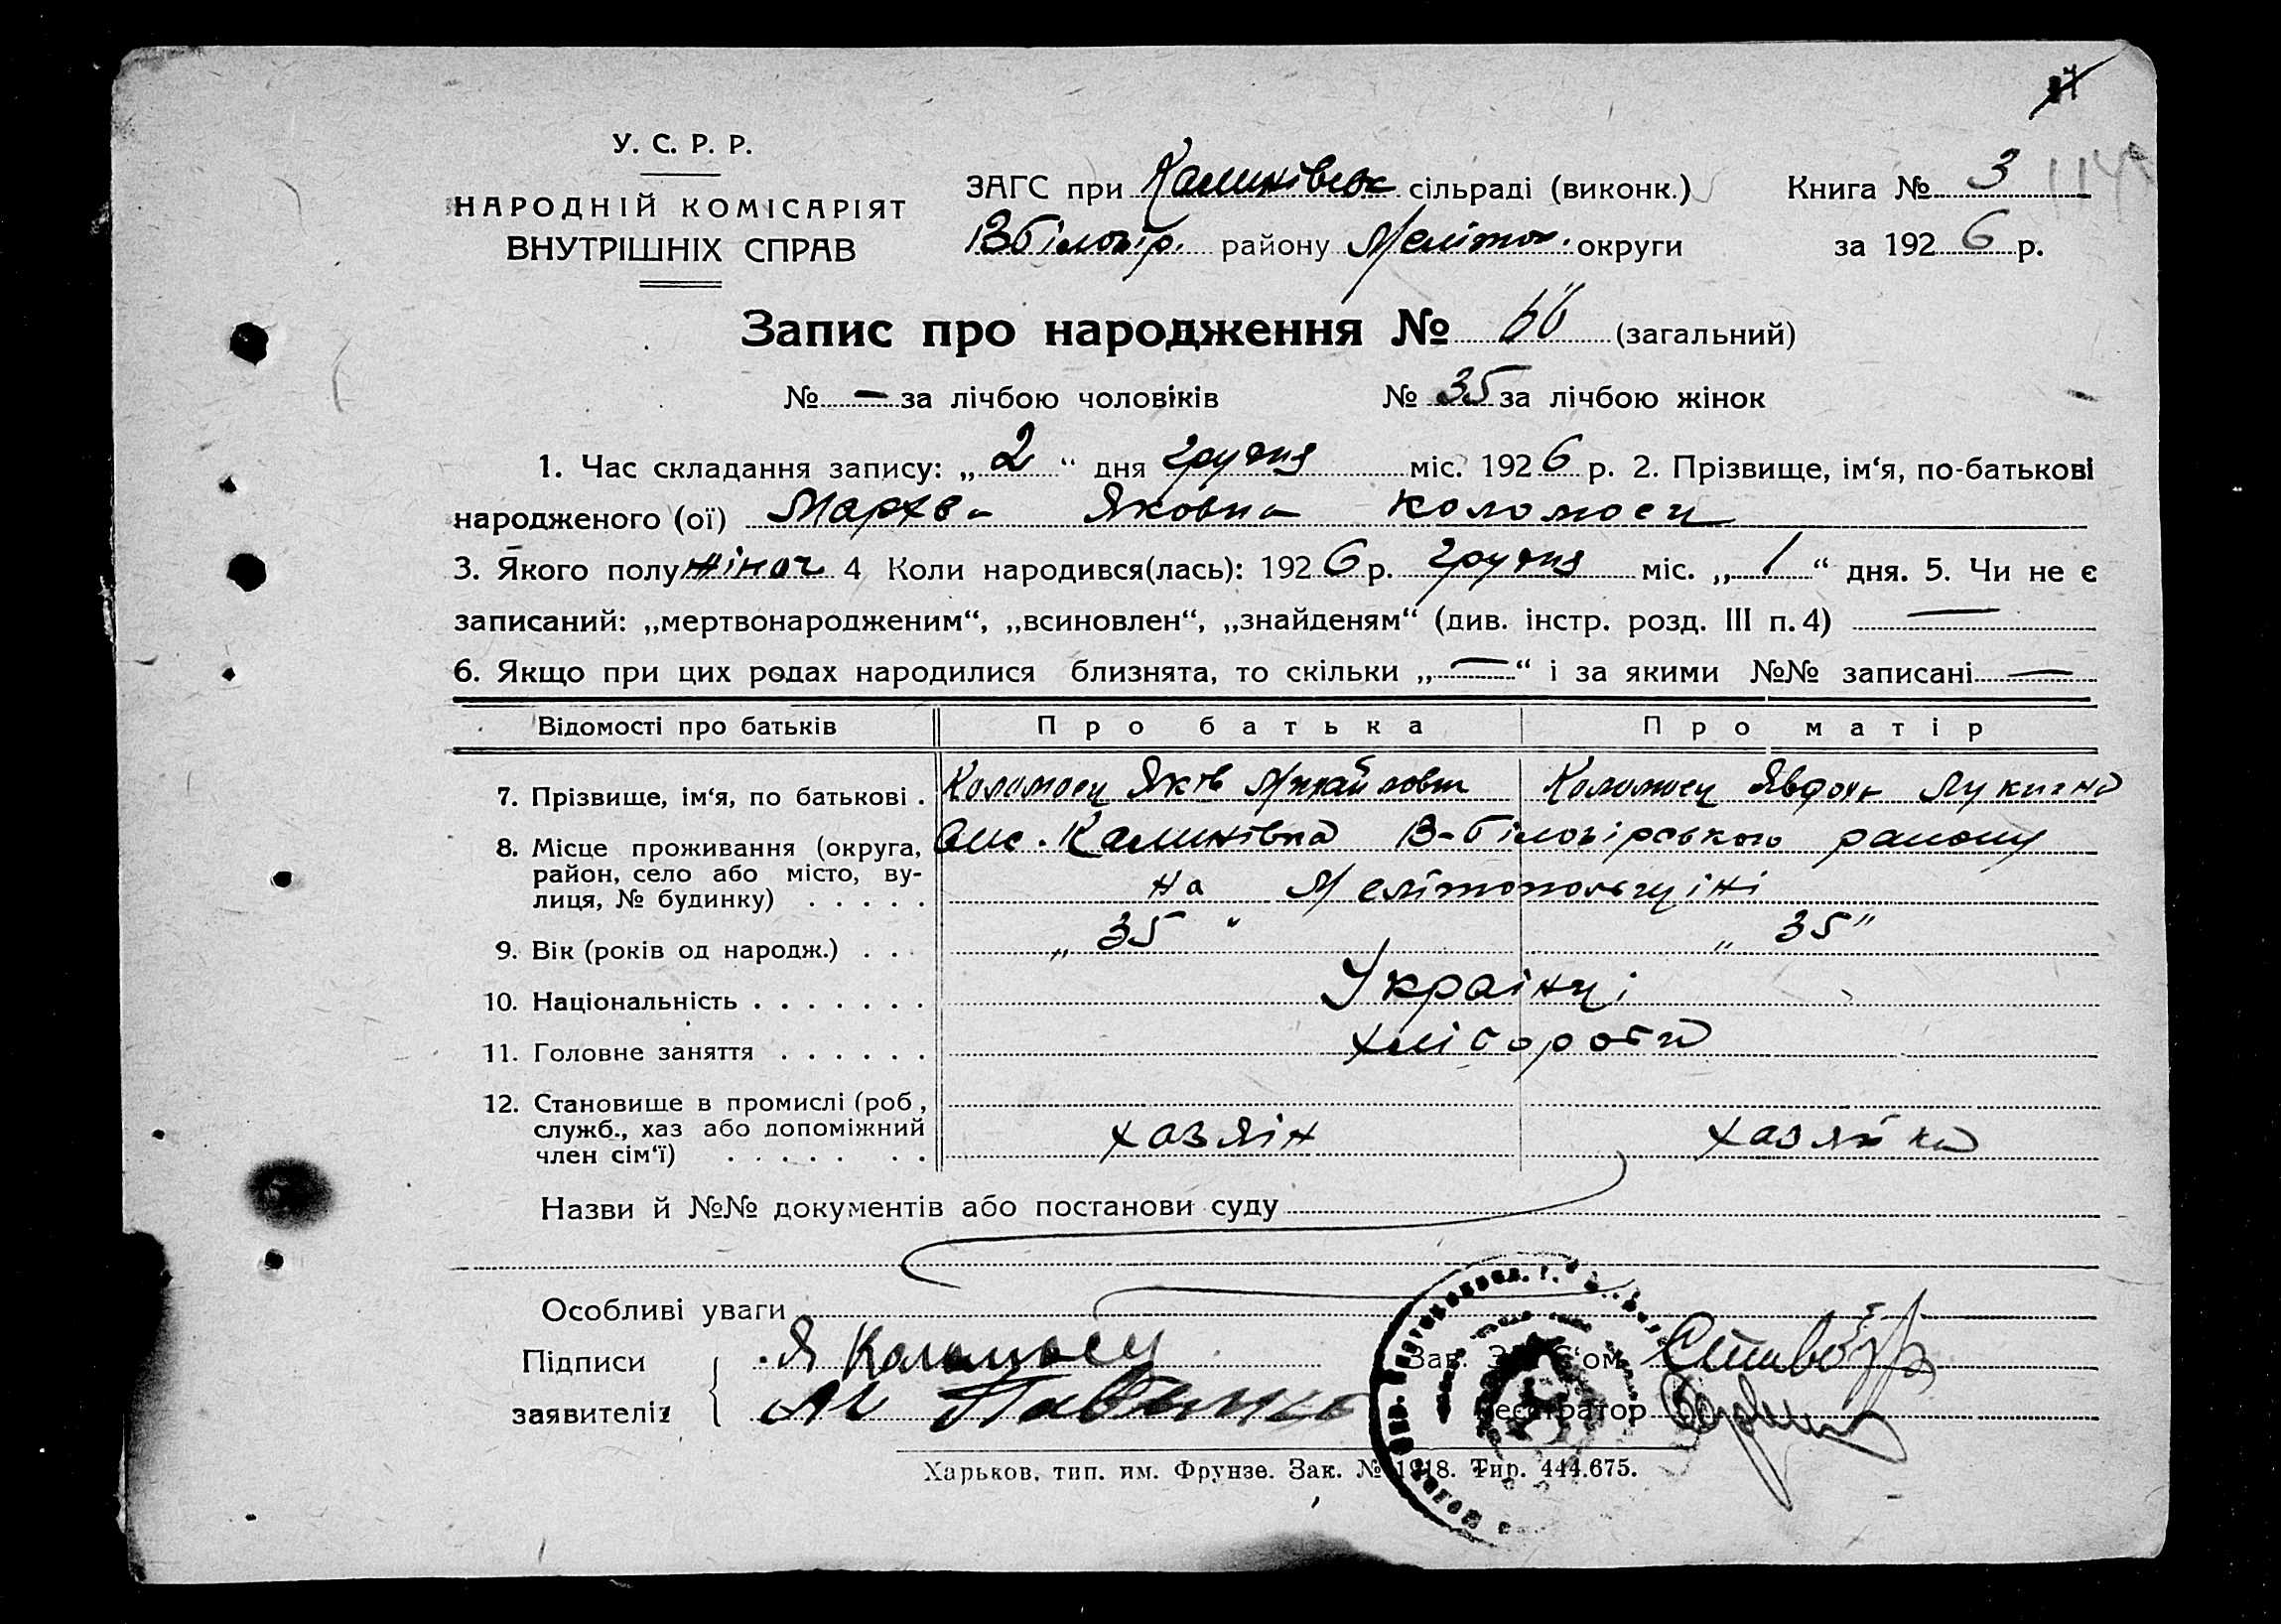 У. С. Р. Р.
НАРОДНІЙ КОМІСАРІЯТ
ВНУТРІШНІХ СПРАВ
ЗАГС при Калинівськ. сільраді (виконк.)
Книга № 3
114
ВБілозір. району Меліton. округи
за 1926 р.
Запис про народження № 66 (загальний)
№ — за лічбою чоловіків № 35 за лічбою жінок
1. Час складання запису: „2“ дня грудня міс. 1926 р. 2. Прізвище, ім‘я, по-батькові
народженого (ої) Мархва Яковна Коломоец
3. Якого полу жіноч 4 Коли народився(лась): 1926 р. грудня міс. „1“ дня. 5. Чи не є
записаний: „мертвонародженим“, „всиновлен“, „знайденям“ (див. інстр. розд. III п. 4) —
6. Якщо при цих родах народилися близнята, то скільки „—“ і за якими №№ записані —
Відомості про батьків Про батька Про матір
7. Прізвище, ім‘я, по батькові . Коломоец Яків Михайлович Коломоец Явдоха Лукична
8. Місце проживання (округа, Калинівка В-Білозірського району
район, село або місто, ву-
лиця, № будинку) . . . . . на Мелітопольщіні
9. Вік (років од народж.) . . . „35“ „35“
10. Національність . . . . . . . Українці
11. Головне заняття . . . . . . хлібороби
12. Становище в промислі (роб.,
служб., хаз або допоміжний хазяін хазяйка
член сім‘ї) . . . . . . .
Назви й №№ документів або постанови суду
Особливі уваги
Підписи Я Коломоец Зав. ЗАГС‘ом
заявителів М Павленко Реєстратор
Харьков, тип. им. Фрунзе. Зак. № 1918. Тир. 444.675.